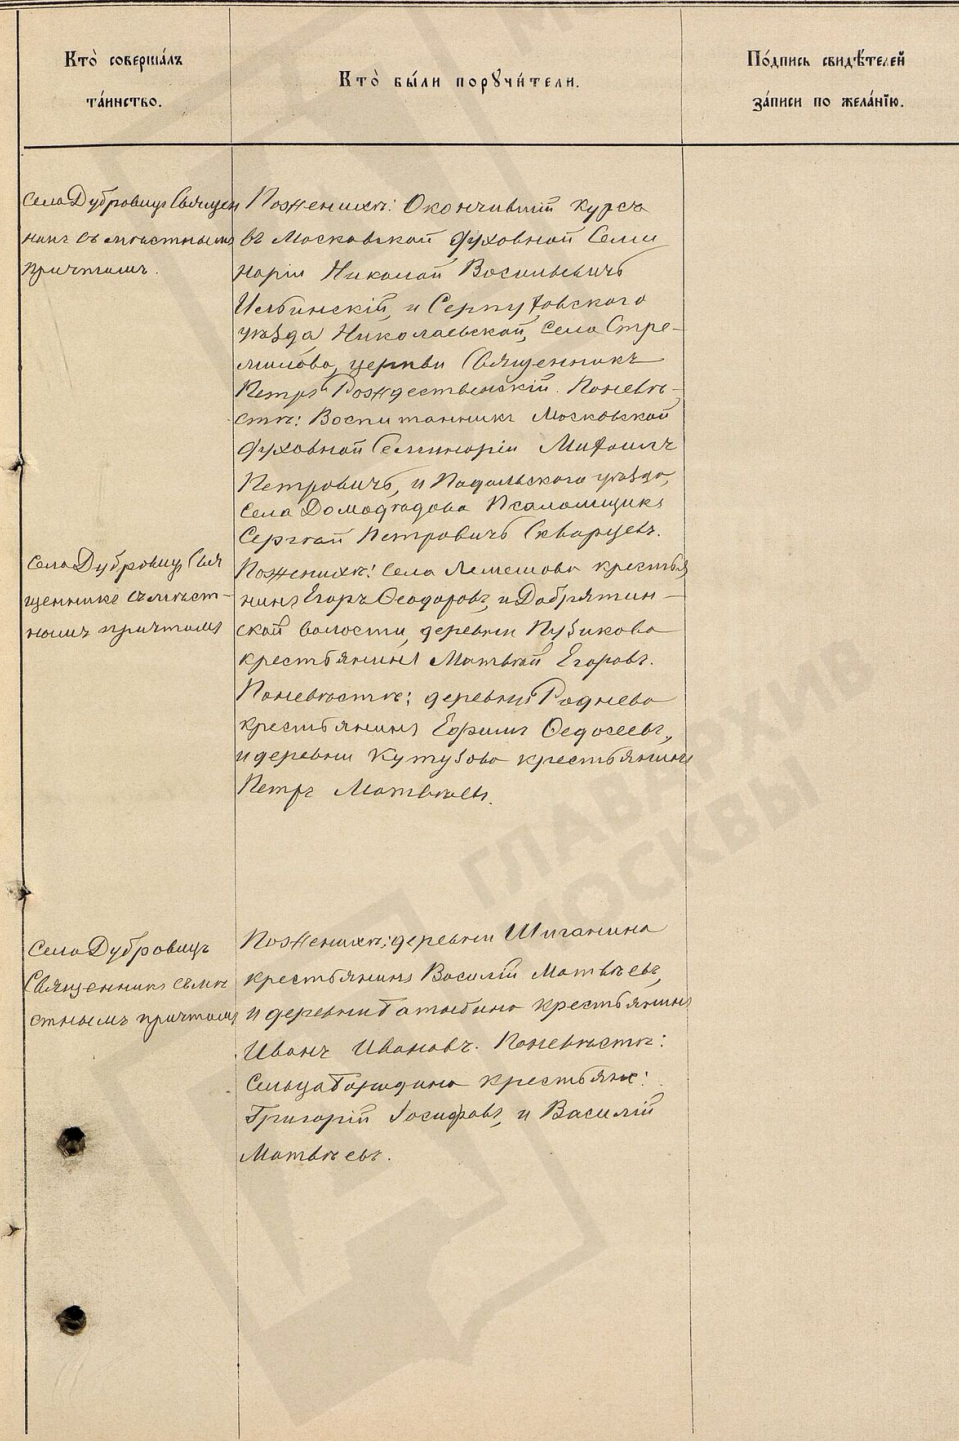 Кто̀ соверша́лъ
та́инство.
Кто̀ бы́ли порꙋчи́тели.
По́дпись свидѣ́телей
за́писи по жела́нїю.
Села Дубровицъ Священ
никъ съ мѣстнымъ
причтомъ.
По женихѣ: Окончившій курсъ
въ Московской Духовной Семи
наріи Николай Васильевичъ
Ильинскій, и Серпуховского
уѣзда, Николаевской, села Стре-
милова, церкви Священникъ
Петръ Рождественскій. По невѣ-
стѣ: Воспитанникъ Московской
Духовной Семинаріи Михаилъ
Петровичъ, и Подольского уѣзда,
села Домодѣдова Псаломщикъ
Сергѣй Петровичъ Скварцевъ.
Села Дубровицъ Свя
щенникъ съ мѣст-
нымъ причтомъ
По женихѣ: села Лемешова крестья
нинъ Егоръ Ѳеодоровъ, и Добрятин-
ской волости, деревни Пузикова
крестьянинъ Матвѣй Егоровъ.
По невѣстѣ: деревни Роднева
крестьянинъ Ефимъ Ѳедосеевъ,
и деревни Кутузова крестьянинъ
Петръ Матвѣевъ.
Села Дубровицъ
Священникъ съ мѣ
стнымъ причтомъ
По женихѣ: деревни Шиганина
крестьянинъ Василій Матвѣевъ,
и деревни крестьянинъ
Иванъ Ивановъ. По невѣстѣ:
Сельца крестьяне:
Григорій Іосифовъ, и Василій
Матвѣевъ.
ГЛАВАРХИВ
МОСКВЫ